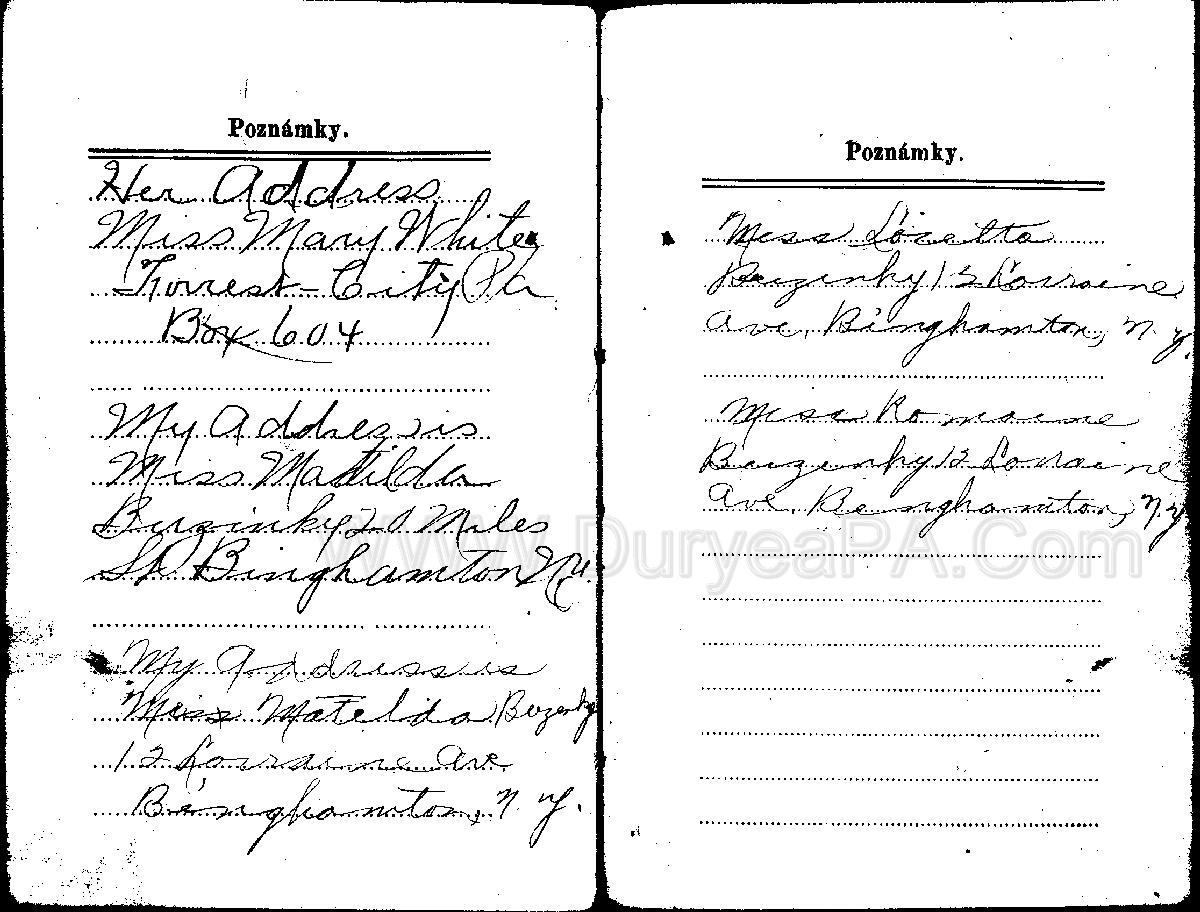 Poznámky.
Her Address
Miss Mary White
Forrest-City Pa
Box 604
My Addres is
Miss Matilda
Buzinky 20 Miles
St Binghamton Ny.
My Address is
Miss Matelda Buzenky
12 Lorraine Ave
Binghamton, N. Y.
Poznámky.
Miss Lozetta
Buzenky 12 Lorraine
Ave. Binghamton, N. Y.
Miss Romaine
Buzenky 12 Lorraine
Ave. Benghamton, N.Y
www.DuryeaPA.Com